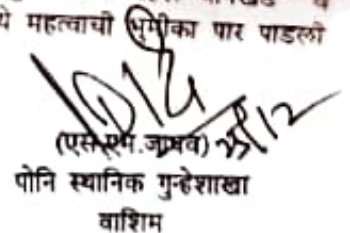 ये महत्वाची भुमीका पार पाडली
(एस.एम.जाधव)
पोनि स्थानिक गुन्हेशाखा
वाशिम